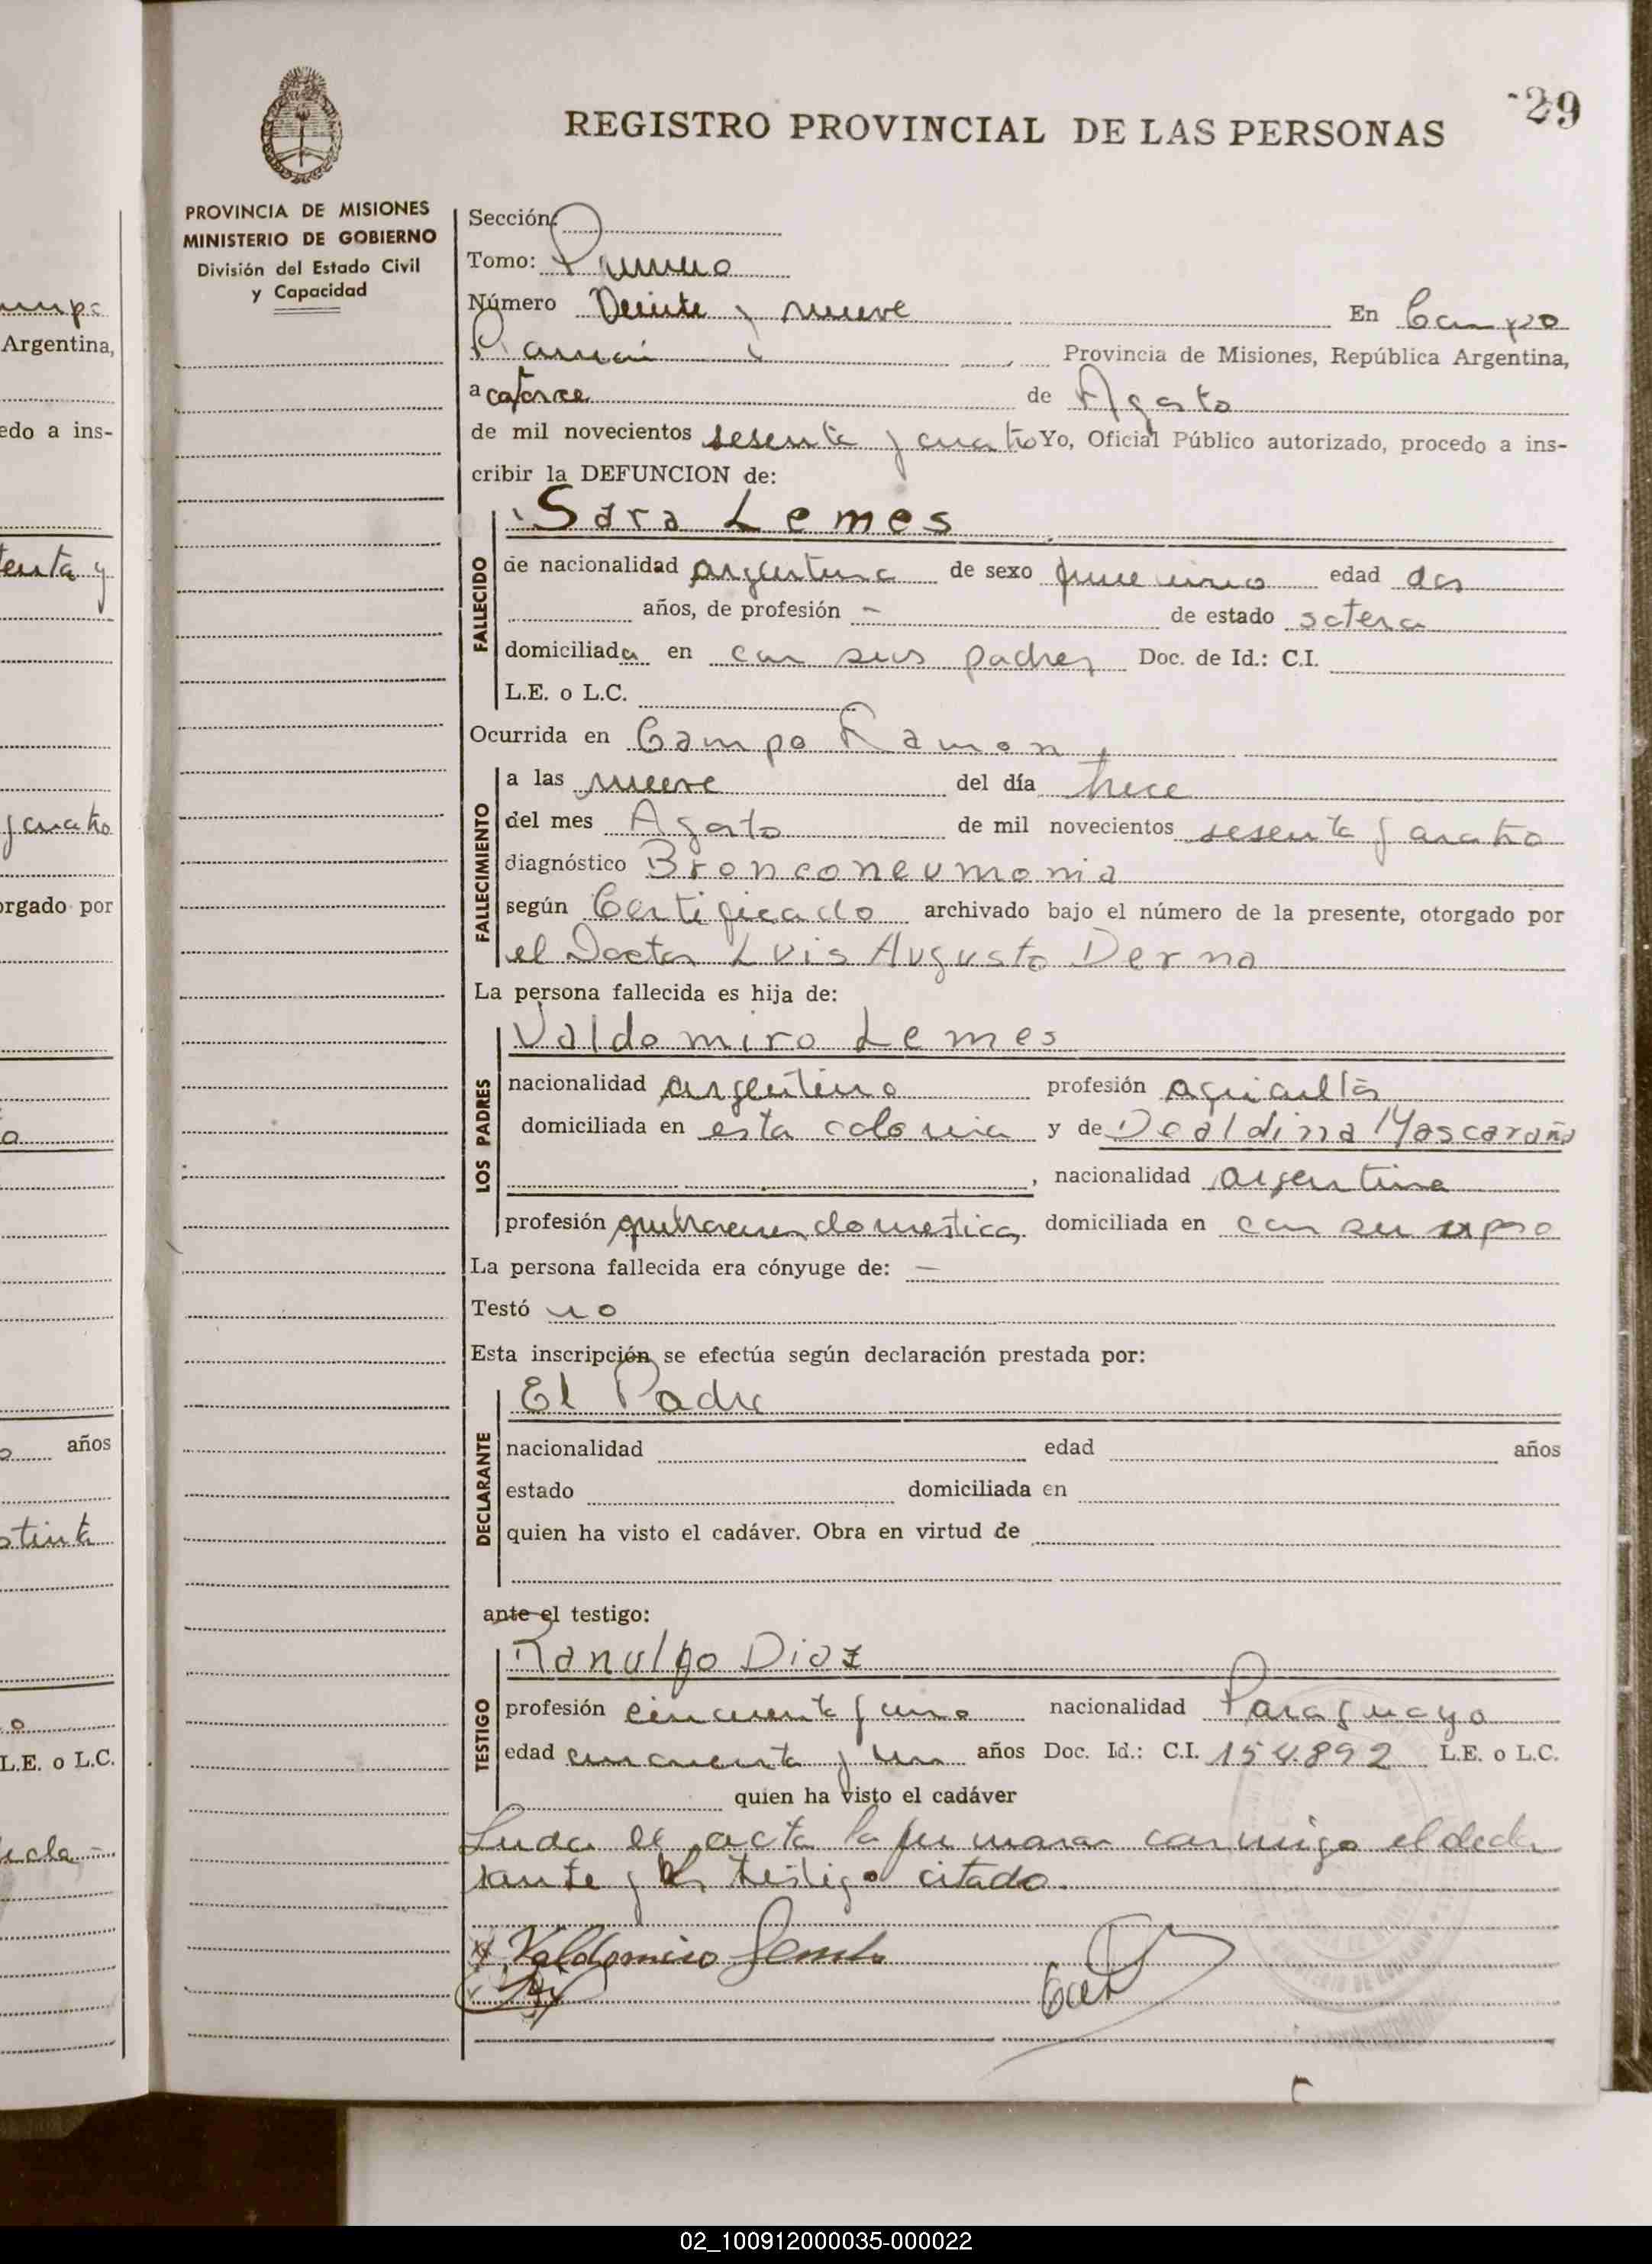 -29
REGISTRO PROVINCIAL DE LAS PERSONAS
PROVINCIA DE MISIONES
MINISTERIO DE GOBIERNO
División del Estado Civil
y Capacidad
Sección:
Tomo: Primero
Número Veinte y nueve En Campo
Ramón Provincia de Misiones, República Argentina,
a catorce de Agosto
de mil novecientos sesenta y cuatro Yo, Oficial Público autorizado, procedo a ins-
cribir la DEFUNCION de:
Sara Lemes
FALLECIDO
de nacionalidad argentina de sexo femenino edad dos
años, de profesión - de estado sotera
domiciliada en con sus padres Doc. de Id.: C.I.
L.E. o L.C.
Ocurrida en Campo Ramon,
FALLECIMIENTO
a las nueve del día trece
del mes Agosto de mil novecientos sesenta y cuatro
diagnóstico Bronconeumonia
según Certificado archivado bajo el número de la presente, otorgado por
el Doctor Luis Augusto Derna
La persona fallecida es hija de:
Valdomiro Lemes
LOS PADRES
nacionalidad argentino profesión agricultor
domiciliada en esta colonia y de Dealdina Mascaraño
, nacionalidad argentina
profesión domestica, domiciliada en con su esposo
La persona fallecida era cónyuge de: —
Testó no
Esta inscripción se efectúa según declaración prestada por:
El Padre
DECLARANTE
nacionalidad edad años
estado domiciliada en
quien ha visto el cadáver. Obra en virtud de
ante el testigo:
Ranulfo Diaz
TESTIGO
profesión cincuenta y uno nacionalidad Paraguayo
edad cincuenta y un años Doc. Id.: C.I. 154.892 L.E. o L.C.
quien ha visto el cadáver
Leida el acta la firmaran conmigo el decla
rante y el testigo citado.
Valdomiro Lemes
umpo
Argentina,
edo a ins-
tenta y
y cuatro
orgado por
o
años
L.E. o L.C.
02_100912000035-000022